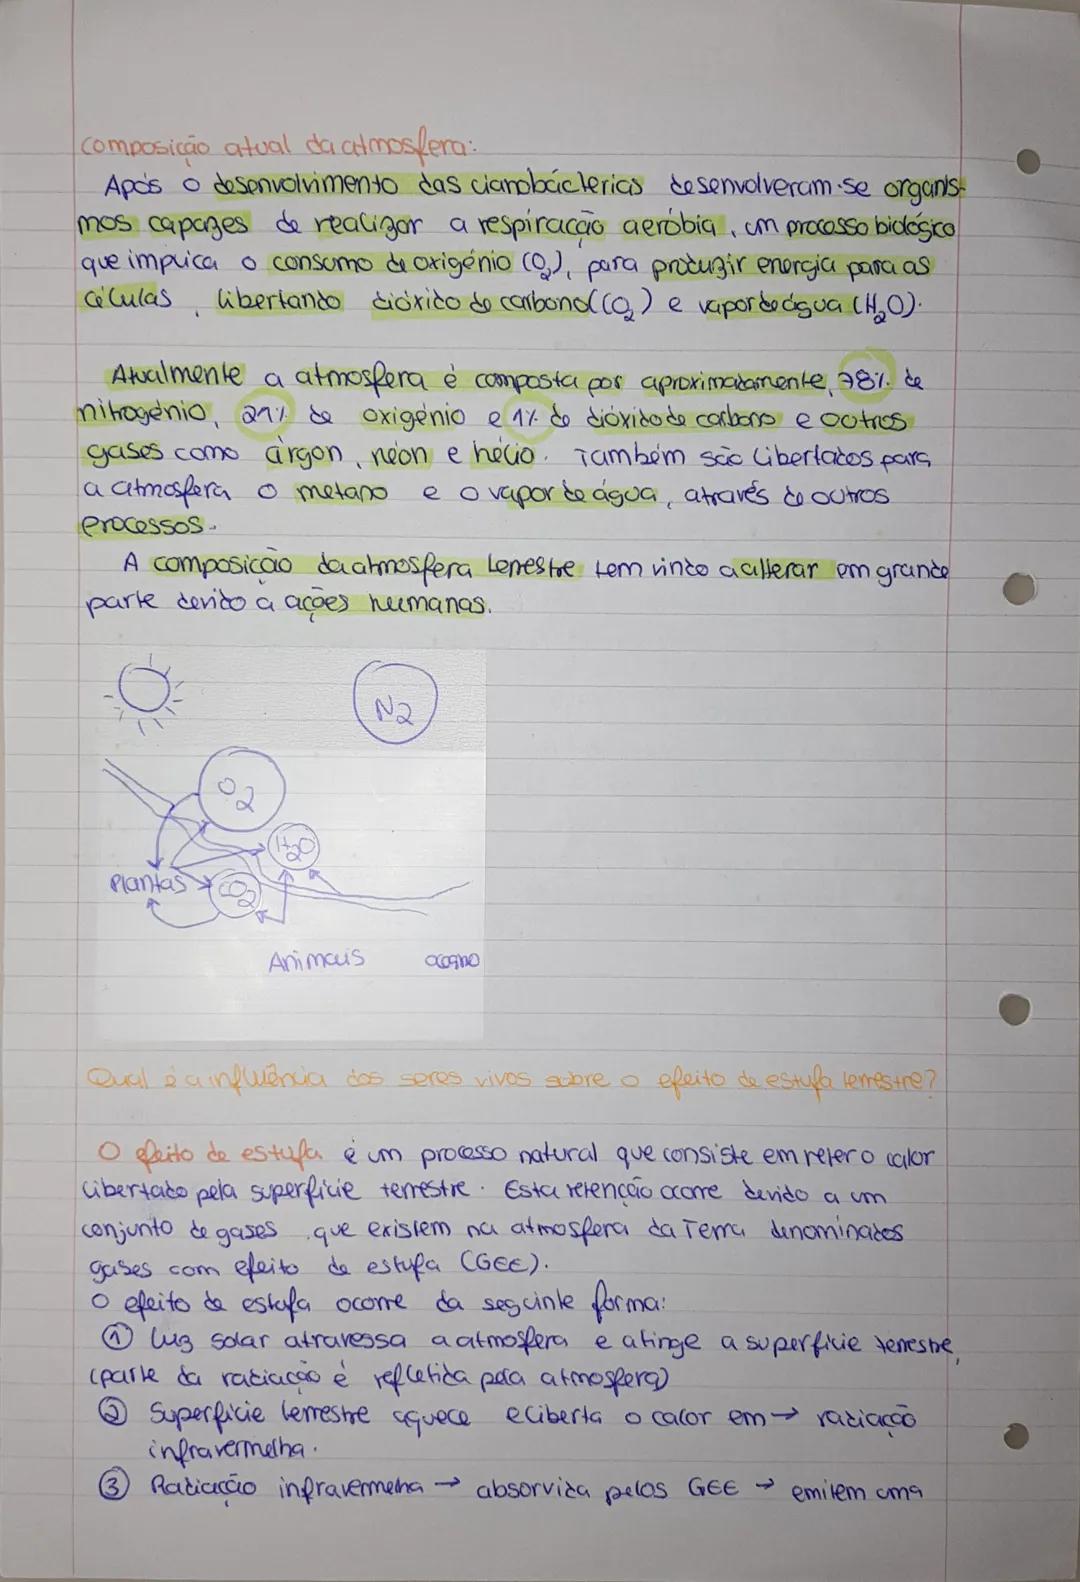 Composição atual da atmosfera:
Após o desenvolvimento das cianobáctérias desenvolveram-se organis-
mos capazes de realizar a respiração aeróbia, um processo biológico
que implica o consumo de oxigénio (O₂), para produzir energia para as
células, libertando dióxido de carbono (CO₂) e vapor de água (H₂O).
Atualmente a atmosfera é composta por aproximadamente, 78% de
nitrogénio, 21% de oxigénio e 1% de dióxido de carbono e outros
gases como árgon, néon e hélio. Também são libertados para
a atmosfera o metano e o vapor de água, através de outros
processos.
A composição da atmosfera terrestre tem vindo a alterar em grande
parte devido a ações humanas.
N2
O2
H2O
Plantas
CO2
Animais
Qual é a influência dos seres vivos sobre o efeito de estufa terrestre?
O efeito de estufa é um processo natural que consiste em reter o calor
libertado pela superfície terrestre. Esta retenção ocorre devido a um
conjunto de gases, que existem na atmosfera da Terra denominados
gases com efeito de estufa (GEE).
O efeito de estufa ocorre da seguinte forma:
① Luz solar atravessa a atmosfera e atinge a superfície terrestre,
(parte da radiação é refletida pela atmosfera)
② Superfície terrestre aquece e liberta o calor em → radiação
infravermelha.
③ Radiação infravermelha → absorvida pelos GEE → emitem uma